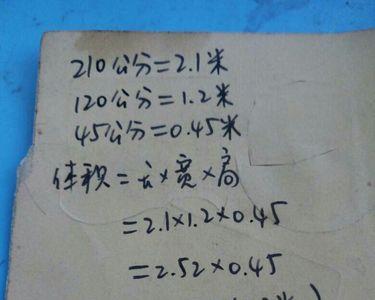 210公分=2.1米
120公分=1.2米
45公分=0.45米
体积=长×宽×高
=2.1×1.2×0.45
=2.52×0.45